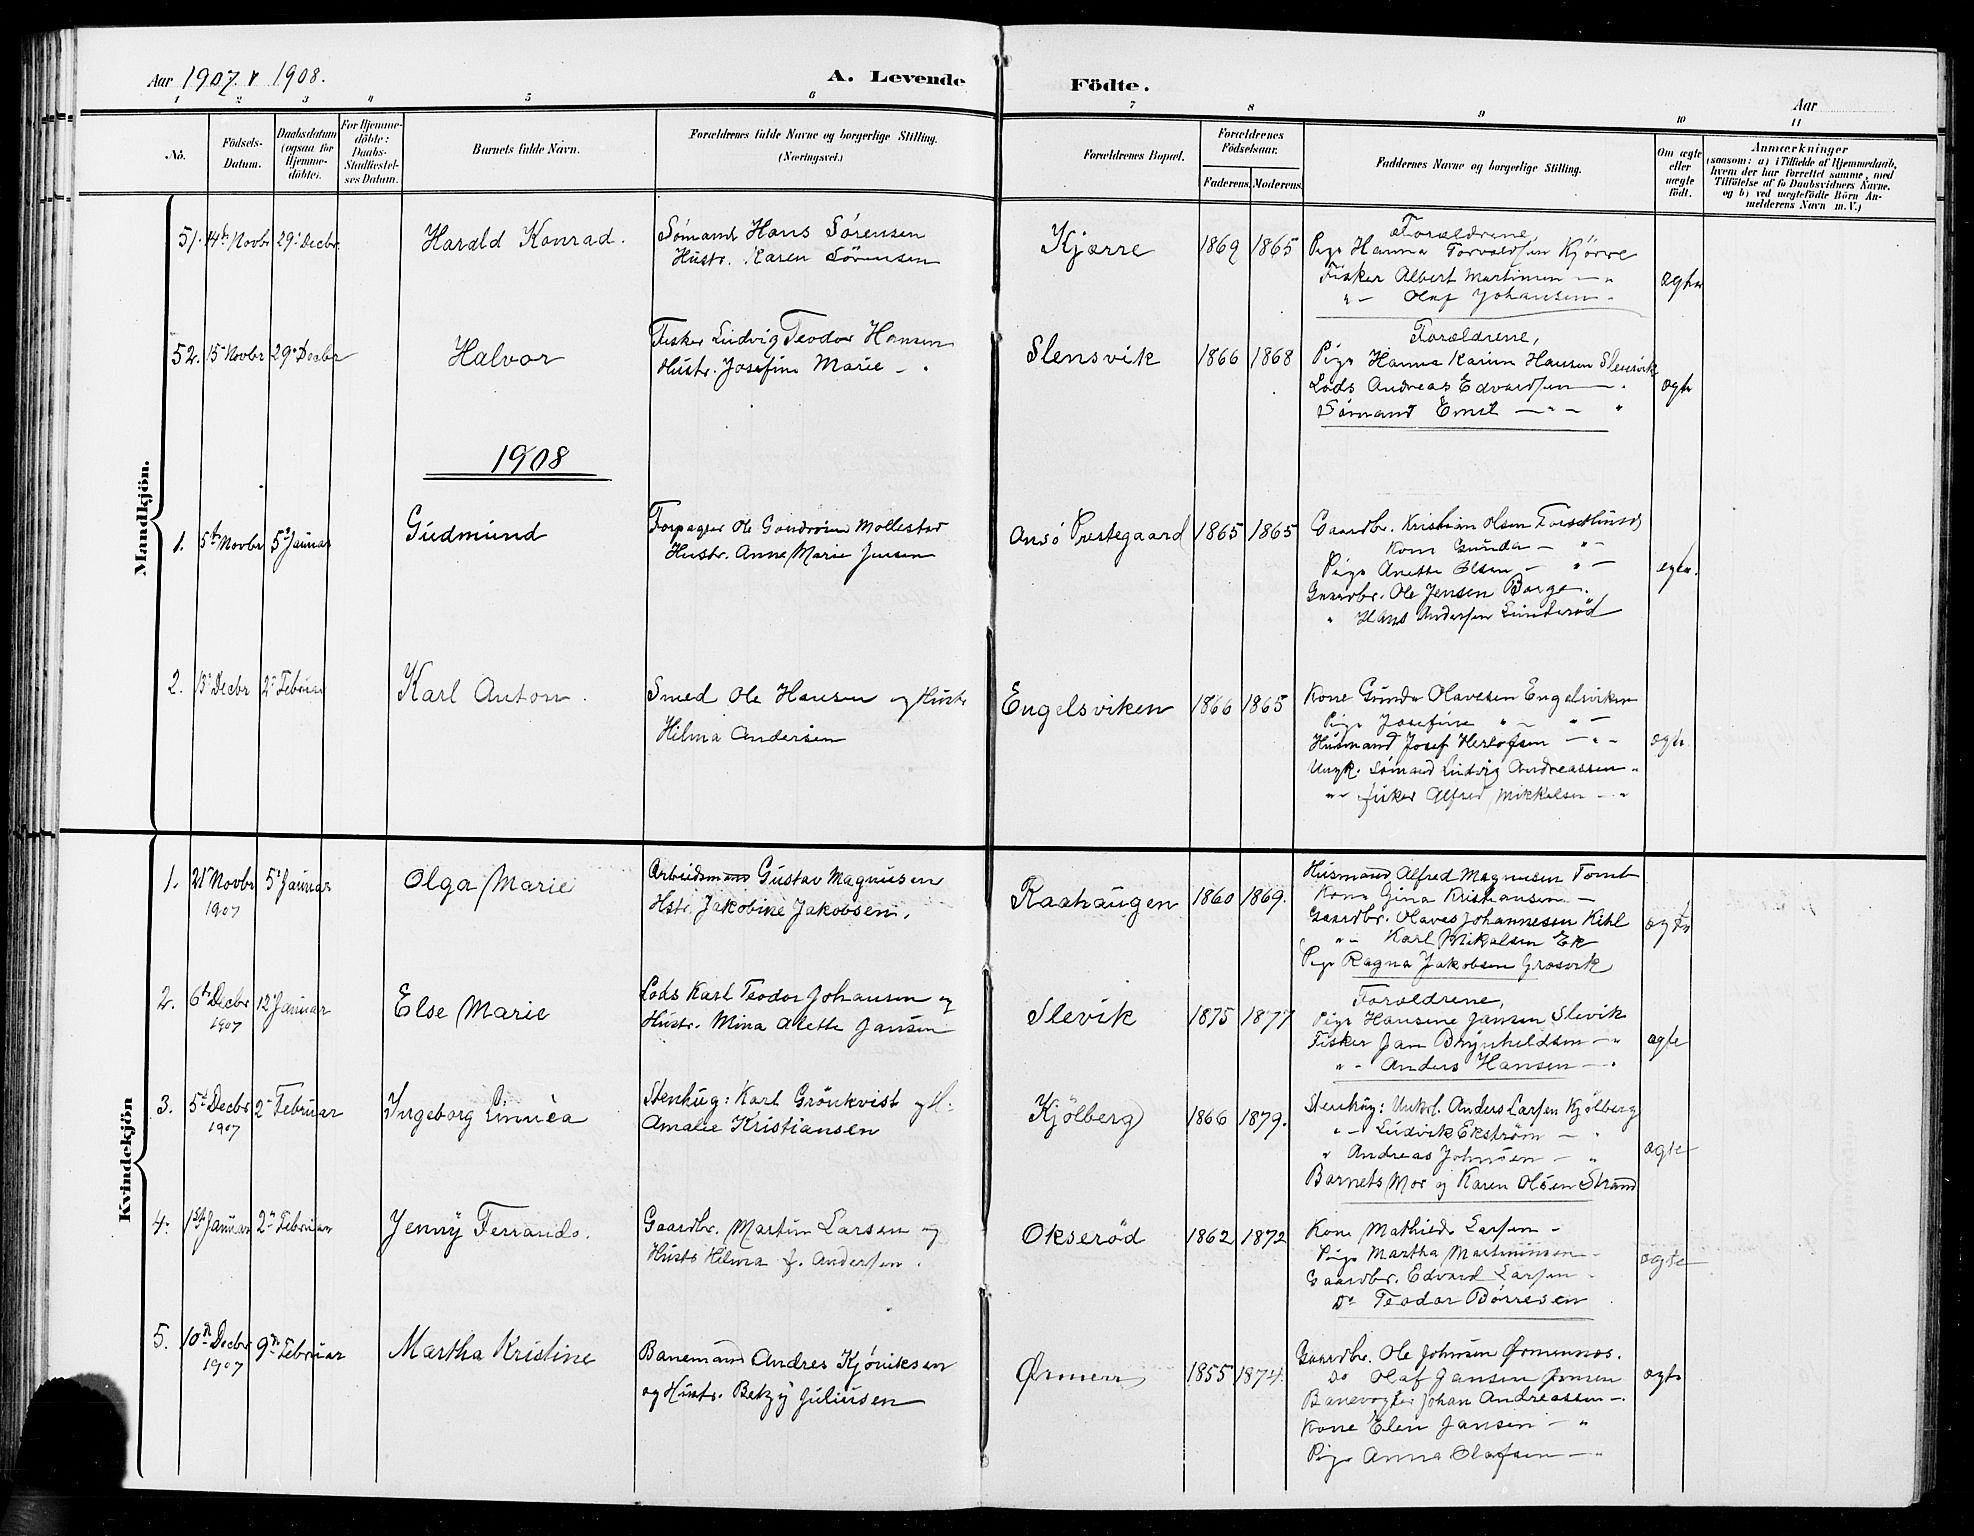 Aar 1907 & 1908.
A. Levende Födte.
Aar
1 2 3 4 5 6 7 8 9 10 11
No.
Födsels-Datum.
Daabsdatum (ogsaa for Hjemmedöbte).
For Hjemmedöbte: Daabs-Stadfæstelses Datum.
Barnets fulde Navn.
Forældrenes fulde Navne og borgerlige Stilling. (Næringsvei.)
Forældrenes Bopæl.
Forældrenes Födselsaar.
Faderens. Moderens.
Faddernes Navne og borgerlige Stilling.
Om ægte eller uægte födt.
Anmærkninger
(saasom: a) i Tilfælde af Hjemmedaab, hvem der har forrettet samme, med Tilföielse af to Daabsvidners Navne. og b) ved uægtefödte Börn Anmelderens Navn m. V.)
Mandkjön.
51. 14de Novbr 29 Decbr. Harald Konrad.
Sømand Hans Sørensen
Hustr. Karen Sörensen
Kjærre 1869 1865
Forældrene,
Pige Hanna Torvaldsen Kjörre
Fisker Albert Martinsen — "
" — Olaf Johansen "
ægte
52. 15 Novbr 29 Decbr Halvor
Fisker Ludvig Teodor Hansen
Hustr. Josefine Marie — "
Slensvik 1866 1868
Forældrene,
Pige Hanna Karin Hansen Slensvik
Lods Andreas Edvardsen — "
Sømand Emil — " — "
ægte
1908
1. 5te Novbr 5te Januar Gudmund
Forpagter Ole Mollestad
Hustr. Anne Marie Jensen
Onsö Prestegaard 1865 1865
Gaardbr. Kristian Olsen
Kone Gunda — " —
Pige Anette Olsen — " —
Gaardbr. Ole Jensen Borge.
" Hans Andersen Linderöd
egte.
2. 13 Decbr 2 Februar Karl Anton.
Smed Ole Hansen og Hustr.
Hilma Andersen
Engelsviken 1866 1865
Kone Gunda Olavesen Engelsviken
Pige Josefine " — " —
Husmand Josef Herlofsen — " —
Ungk. Sømand Ludvig Andreassen "
" fisker Alfred Mikkelsen — "
ægte
Kvindekjön
1. 21 Novbr 1907 5 Januar Olga Marie
Arbeidsmand Gustav Magnusen
Hstr. Jakobine Jakobsen.
Raahaugen 1860 1869.
Husmand Alfred Magnusen Tomb
Kone Gina Kristiansen —
Gaardbr. Olaves Johannesen Kihl
" — Karl Mikalsen Ek
Pige Ragna Jakobsen Grosvik
ægte
2. 6te Decbr 1907 12 Januar Else Marie
Lods Karl Teodor Johansen og
Hustr. Mina Alette Jansen
Slevik 1875 1877
Forældrene,
Pige Hansine Jansen Slevik
Fisker Jan Brynhildsen — "
" — Anders Hansen — "
ægte
3. 5te Decbr 1907 2 Februar Ingeborg Linnéa
Stenhug: Karl Grönkvist og H:
Amalie Kristiansen
Kjölberg 1866 1879.
Stenhug: Unkrl. Anders Larsen Kjölberg
" — Ludvik Ekström — "
" Andreas Johnsen — "
Barnets Mor og Karen Olsen Strand
ægte
4. 1ste Januar 2n Februar Jenny Fernanda.
Gaardbr. Martin Larsen og
Hustr Hilma f. Andersen.
Okseröd 1862 1872
Kone Mathilde Larsen —
Pige Martha Martinusen —
Gaardbr. Edvard Larsen "
Do Teodor Börresen
ægte
5. 10n Decbr 1907 9n Februar Martha Kristine
Banemand Andres Kjøniksen
og Hustr. Betzy Juliusen
Ørmen 1855 1874.
Gaardbr. Ole Johnsen Ørmennæs.
Do Olaf Jansen Ørmen
Banevogter Johan Andreassen —
Kone Elen Jansen — "
Pige Anna Olafsen — "
ægte